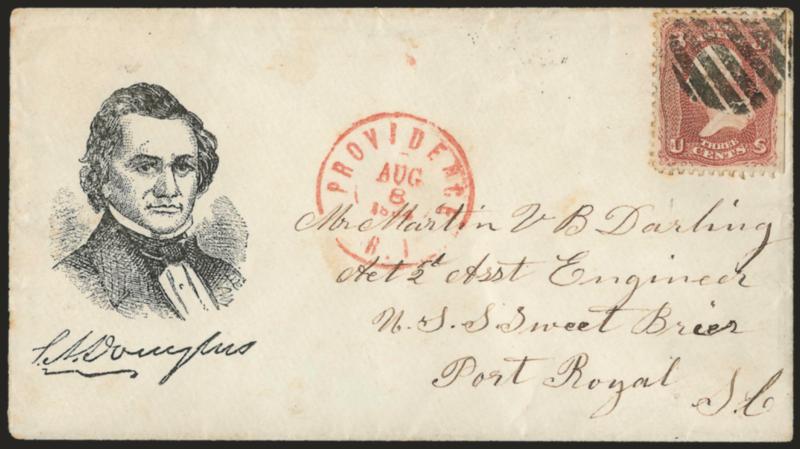 U S
THREE
CENTS
PROVIDENCE
AUG
8
R. I.
S. A. Douglas
Mr Martin V B Darling
Act 2d Asst Engineer
U. S. S. Sweet Brier
Port Royal
S. C